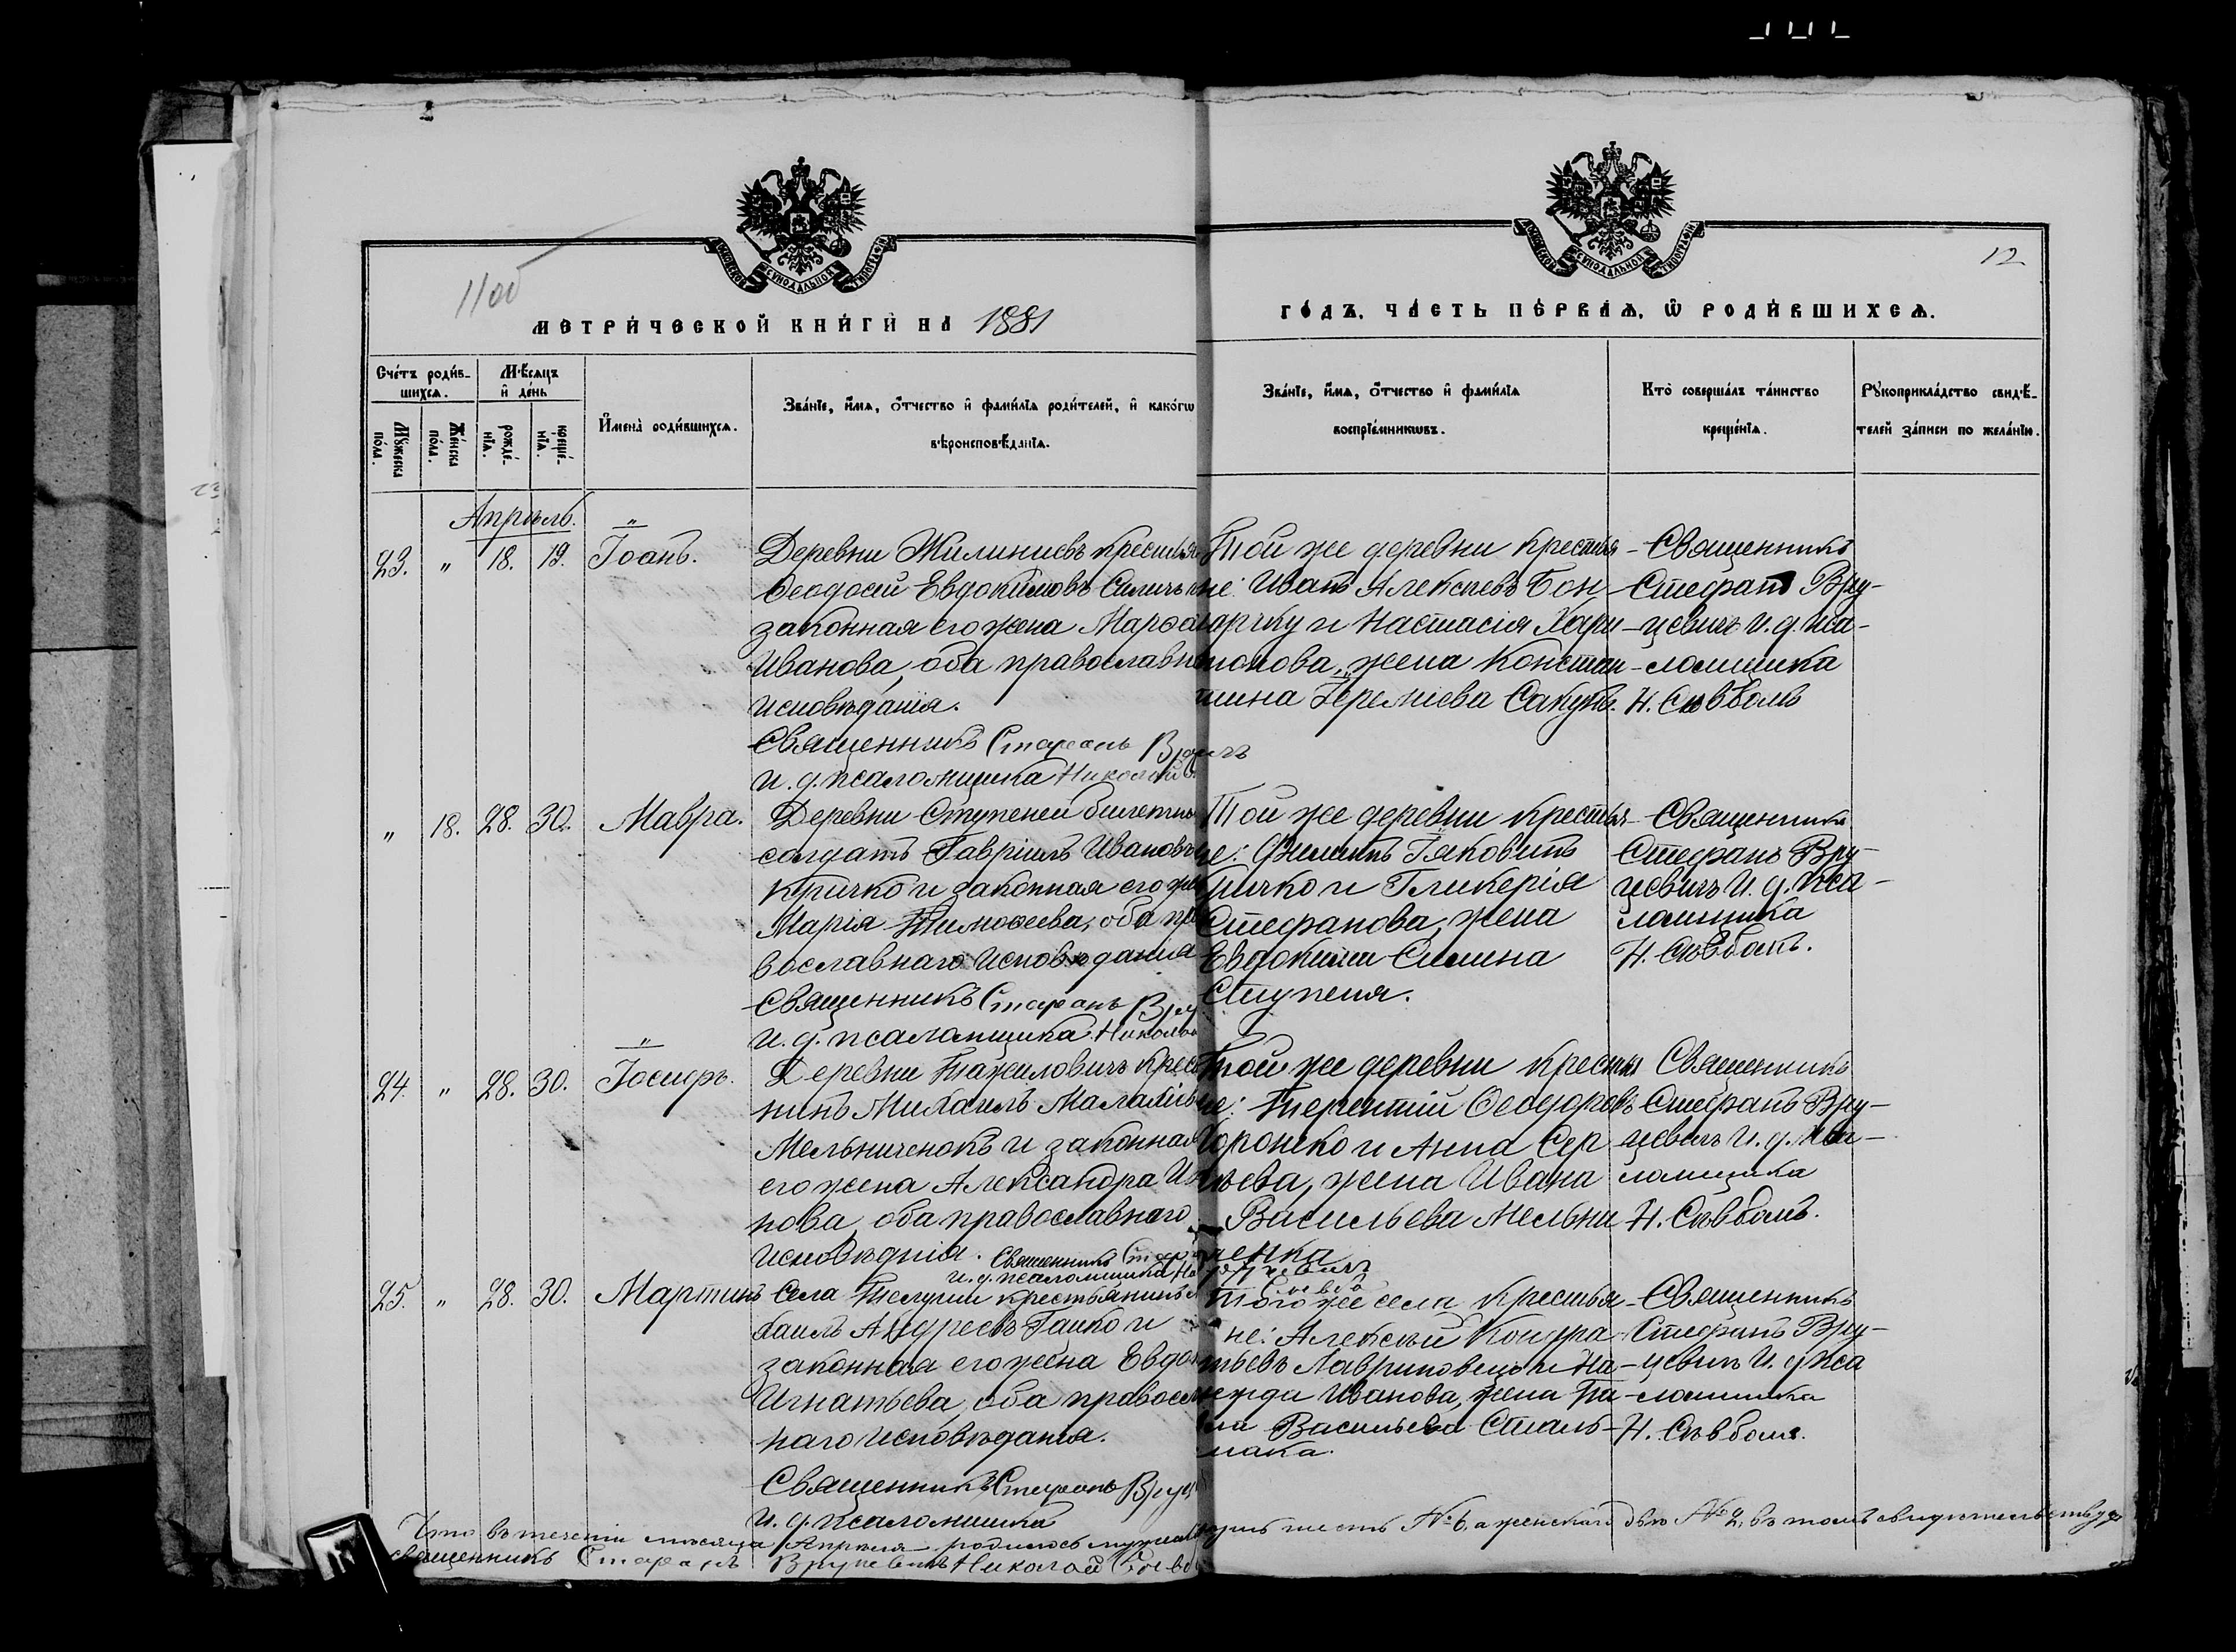 12
1100
МЕТРИ́ЧЕСКОЙ КНИ́ГИ НА 1881
ГО́ДЪ, ЧА́СТЬ ПЕ́РВАѦ, Ѿ РОДИ́ВШИХСѦ.
Сче́тъ роди́в-
шихсѧ.
Мꙋ́жеска по́ла.
Же́нска по́ла.
Мѣ́сяцъ и҆ де́нь
рожде́-
нїѧ.
креще́-
нїѧ.
И҆мена̀ роди́вшихсѧ.
Зва́нїе, и҆́мѧ, ѻ҆́тчество и҆ фами́лїѧ роди́телей, и҆ како́гѡ
вѣроисповѣ́данїѧ.
Зва́нїе, и҆́мѧ, ѻ҆́тчество и҆ фами́лїѧ
воспрїе́мникѡвъ.
Кто̀ соверша́лъ та́инство
креще́нїѧ.
Рꙋкоприкла́дство свидѣ́-
телей за́писи по жела́нїю.
Апрѣль.
23. " 18. 19. Іоанъ.
Деревни Жилиничъ крестья
Ѳеодосій Евдокимовъ
законная его жена Марѳа
Иванова, оба православн
исповѣданія.
Священникъ Стефанъ
и. д. псаломщика Николай
Той же деревни крестья-
не: Иванъ Алексѣевъ Бон-
и Настасія Хари-
тонова, жена Констан-
тина Іереміева Сакунъ.
Священникъ
Стефанъ Вру-
цевичъ и. д. пса-
ломщика
" 18. 28. 30. Мавра.
Деревни Ступеней билетны
солдатъ Гавріилъ Ивановъ
Кричко и законная его же
Марія Тимоѳеева, оба пра
вославнаго исповѣданія
Священникъ Стефанъ Вру
и. д. псаломщика Николай
Той же деревни крестья-
не: Филиппъ Іаковичъ
Кричко и Гликерія
Стефанова, жена
Евдокима Симина
Ступеня.
Священникъ
Стефанъ Вру-
цевичъ и. д. пса-
ломщика
24. " 28. 30. Іосифъ.
Деревни Тажиловичъ крес
нинъ Михаилъ Малахіев
Мельниченокъ и законная
его жена Александра Ива
нова, оба православнаго
исповѣданія. Священникъ Стеф
и. д. псаломщика Ни
Той же деревни крестья
не: Терентій Ѳеодоровъ
и Анна Сер
гѣева, жена Ивана
Васильева Мельни
ченка
Священникъ
Стефанъ Вру-
цевичъ и. д. пса-
ломщика
25. " 28. 30. Мартинъ
Села крестьянинъ
хаилъ Андреевъ Гацко и
законная его жена Евдок
Игнатьева, оба правосла
наго исповѣданія.
Священникъ Стефанъ Вруц
и. д. псаломщика
Того же села крестья-
не: Алексѣй Кондра
тьевъ Лавриновецъ и На-
дежда Иванова, жена Па-
вла Васильева Сталь-
мака.
Священникъ
Стефанъ Вру-
цевичъ и. д. пса
ломщика
Что въ теченіи мѣсяца Апрѣля родилось мужеска шесть № 6, а женскаго двѣ № 2, въ томъ свидѣтельствуемъ
священникъ Стефанъ Вруцевичъ Николай